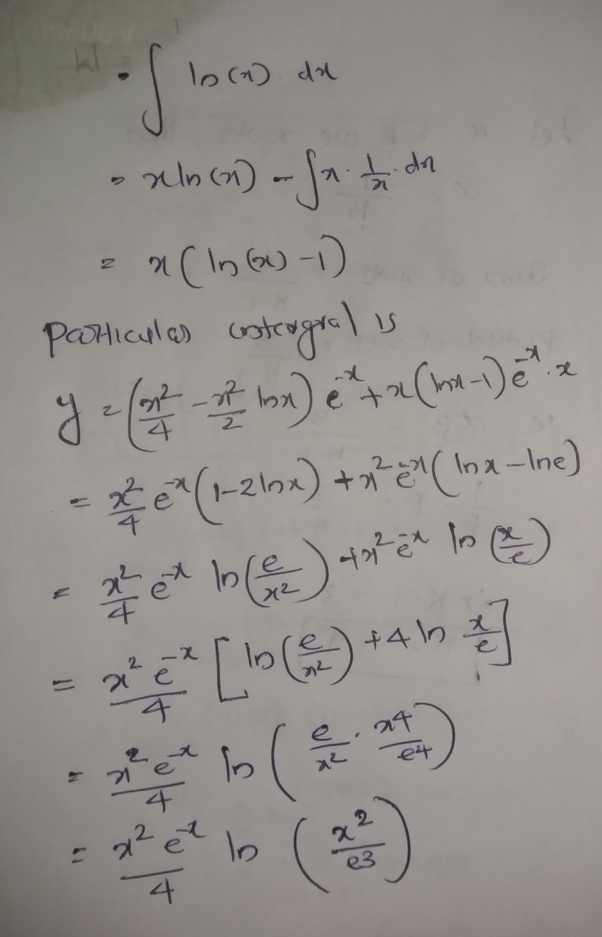 = ∫ ln(x) dx
= xln(x) - ∫x · 1/x · dx
= x(ln(x) - 1)
Particular intergral is
y = (x²/4 - x²/2 lnx) e⁻ˣ + x(lnx - 1) e⁻ˣ · x
= x²/4 e⁻ˣ (1 - 2lnx) + x² e⁻ˣ (lnx - lne)
= x²/4 e⁻ˣ ln(e/x²) + x² e⁻ˣ ln(x/e)
= x² e⁻ˣ/4 [ln(e/x²) + 4 ln x/e]
= x² e⁻ˣ/4 ln(e/x² · x4/e4)
= x² e⁻ˣ/4 ln(x²/e3)